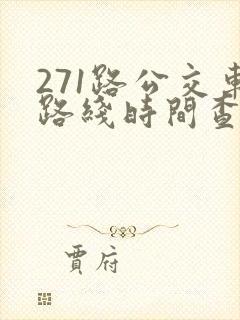 271路公交車
路綫時間查
賈府